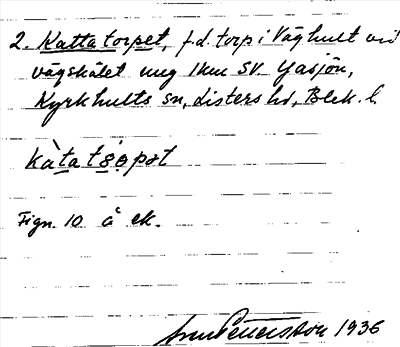 2. Kattatorpet, f.d. torp i Våghult vid
vägskälet ung 1 km SV. Yasjön,
Kyrkhults sn, Listers hd, Blek. l.
kàtatspət
Fign. 10 å ek.
Pettersson 1936